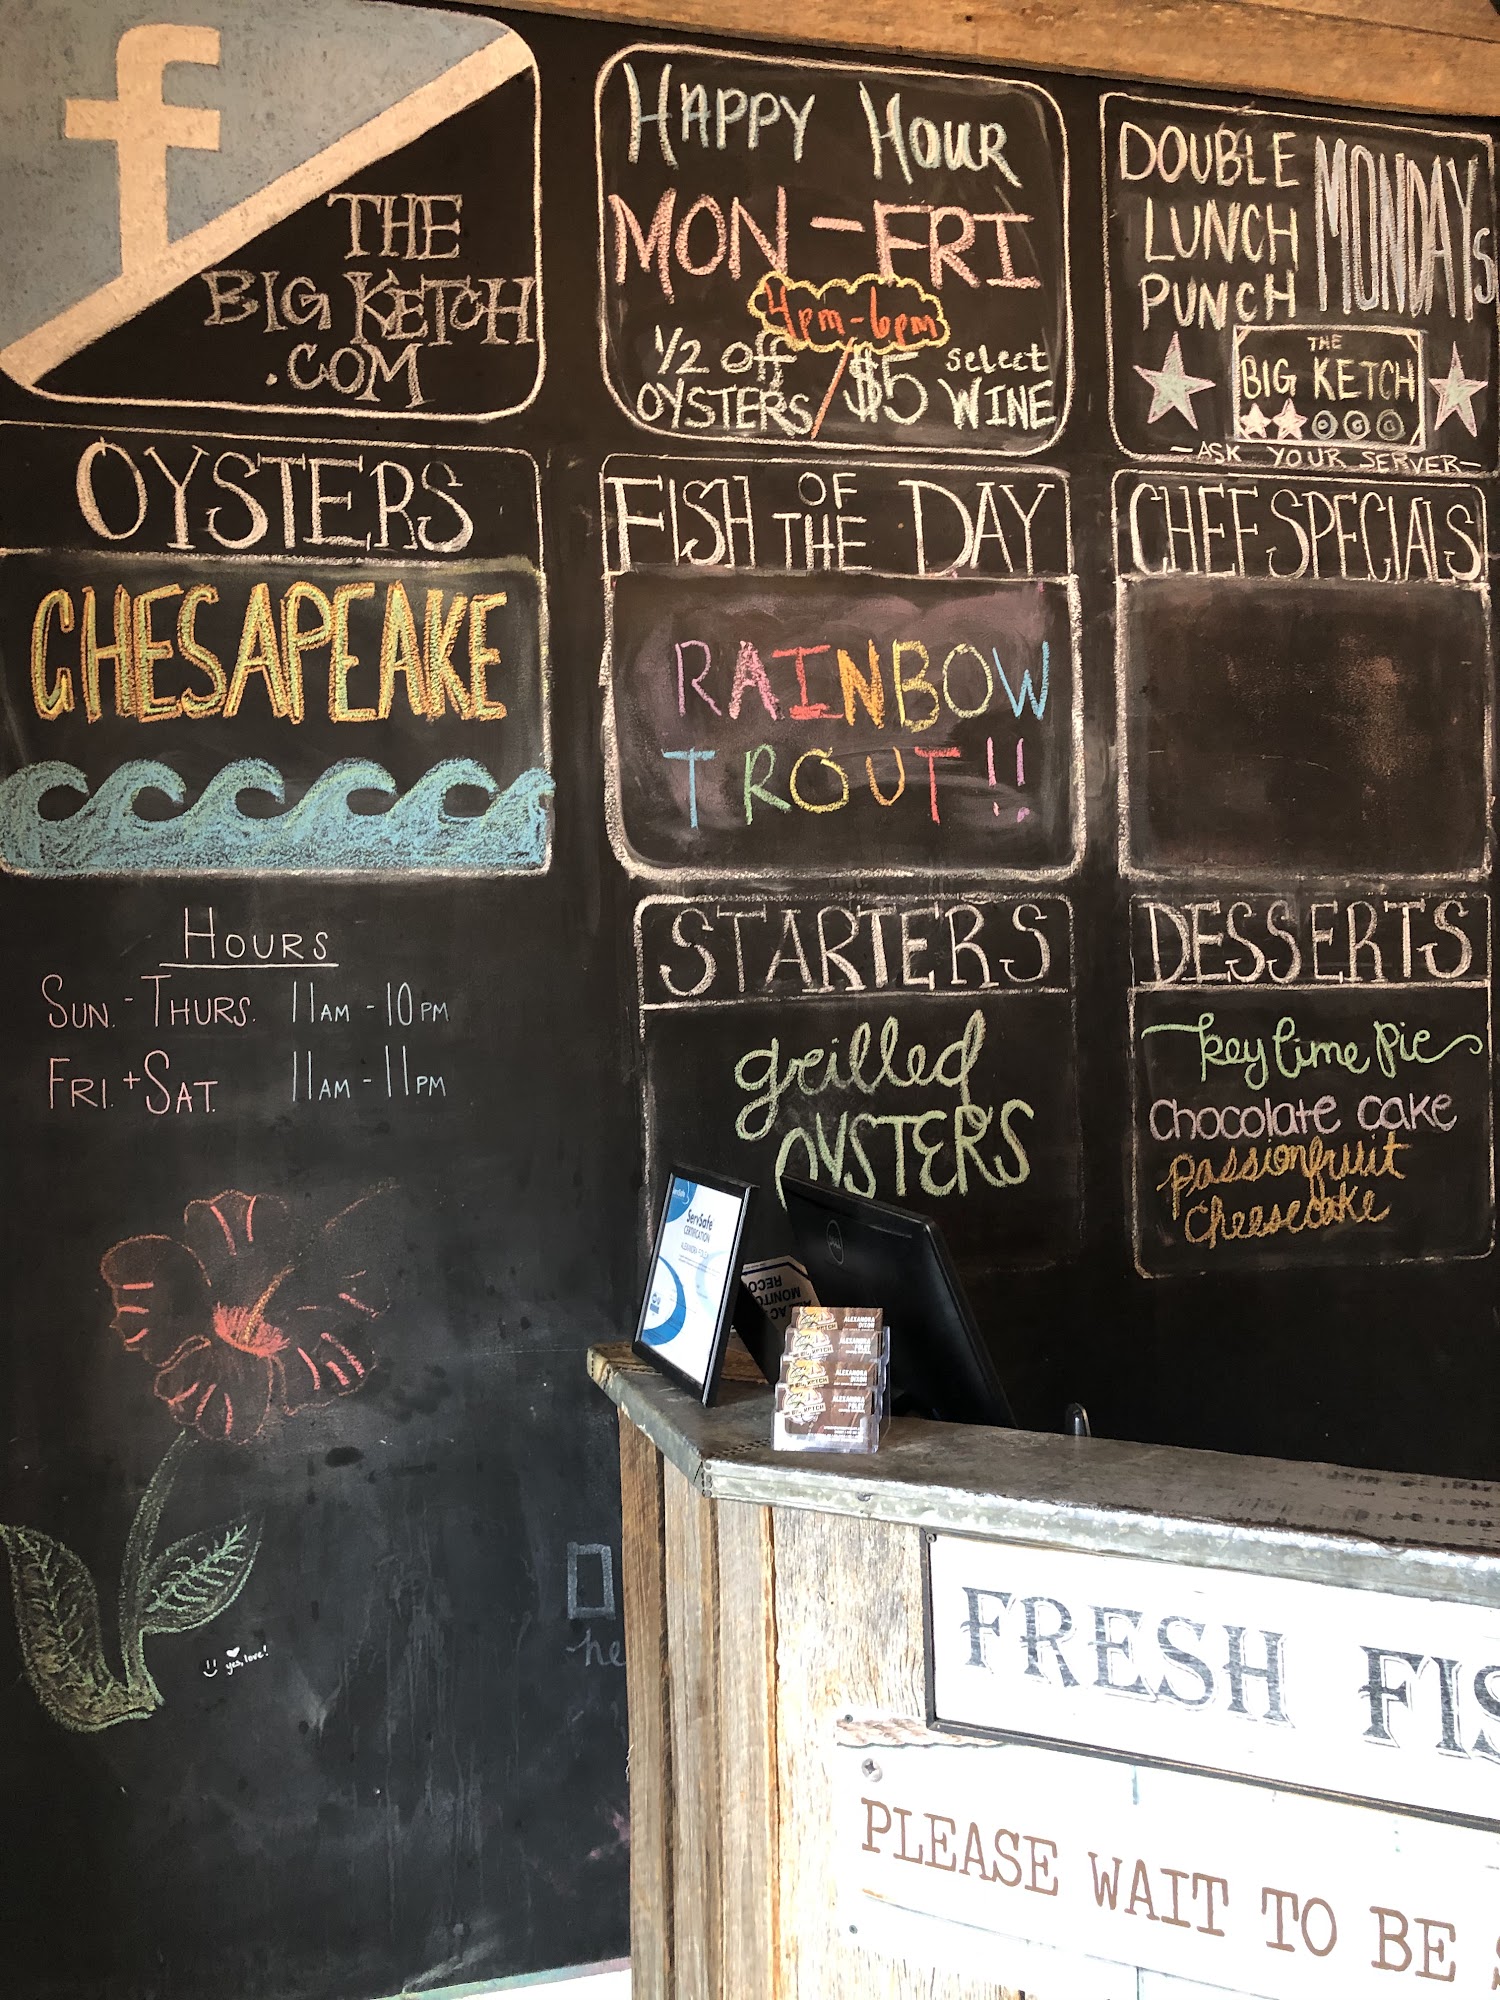 f
THE
BIG KETCH
.COM
HAPPY HOUR
MON-FRI
4pm-6pm
1/2 off
OYSTERS/
$5 select
WINE
DOUBLE
LUNCH
PUNCH
MONDAYs
THE
BIG KETCH
-ASK YOUR SERVER-
OYSTERS
CHESAPEAKE
FISH OF THE DAY
RAINBOW
TROUT!!
CHEF SPECIALS
HOURS
SUN.-THURS. 11AM-10PM
FRI.+SAT. 11AM-11PM
STARTERS
grilled
OYSTERS
DESSERTS
key lime pie
chocolate cake
passionfruit
cheesecake
yes, love!
he
ServSafe
CERTIFICATION
DELL
MONITO
RECO
ALEXANDRA
DIXON
ALEXANDRA
FOLEY
ALEXANDRA
DIXON
ALEXANDRA
FOLEY
BIG KETCH
FRESH FIS
PLEASE WAIT TO BE